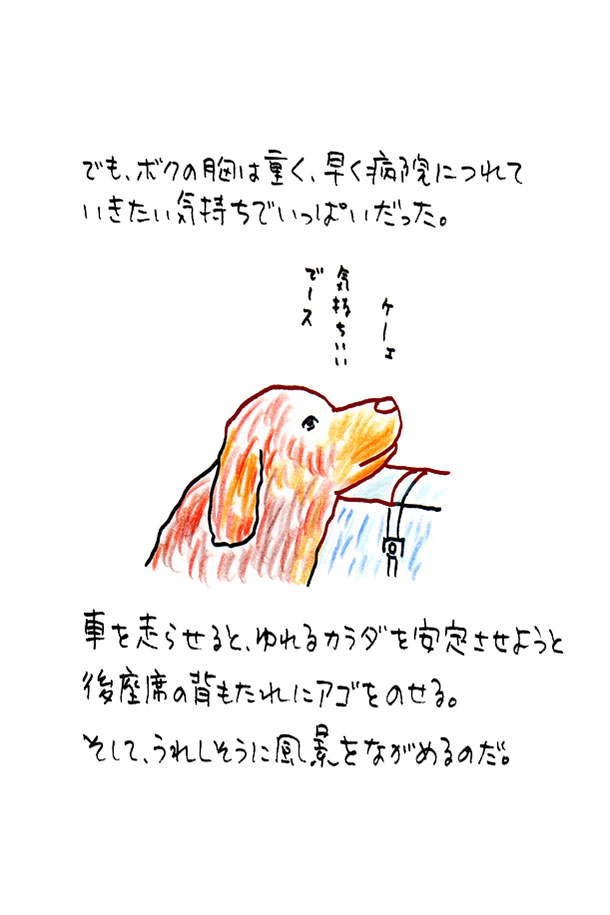 でも、ボクの胸は重く、早く病院につれて
いきたい気持ちでいっぱいだった。
ケーェ
気持ちいい
でース
車を走らせると、ゆれるカラダを安定させようと
後座席の背もたれにアゴをのせる。
そして、うれしそうに風景をながめるのだ。